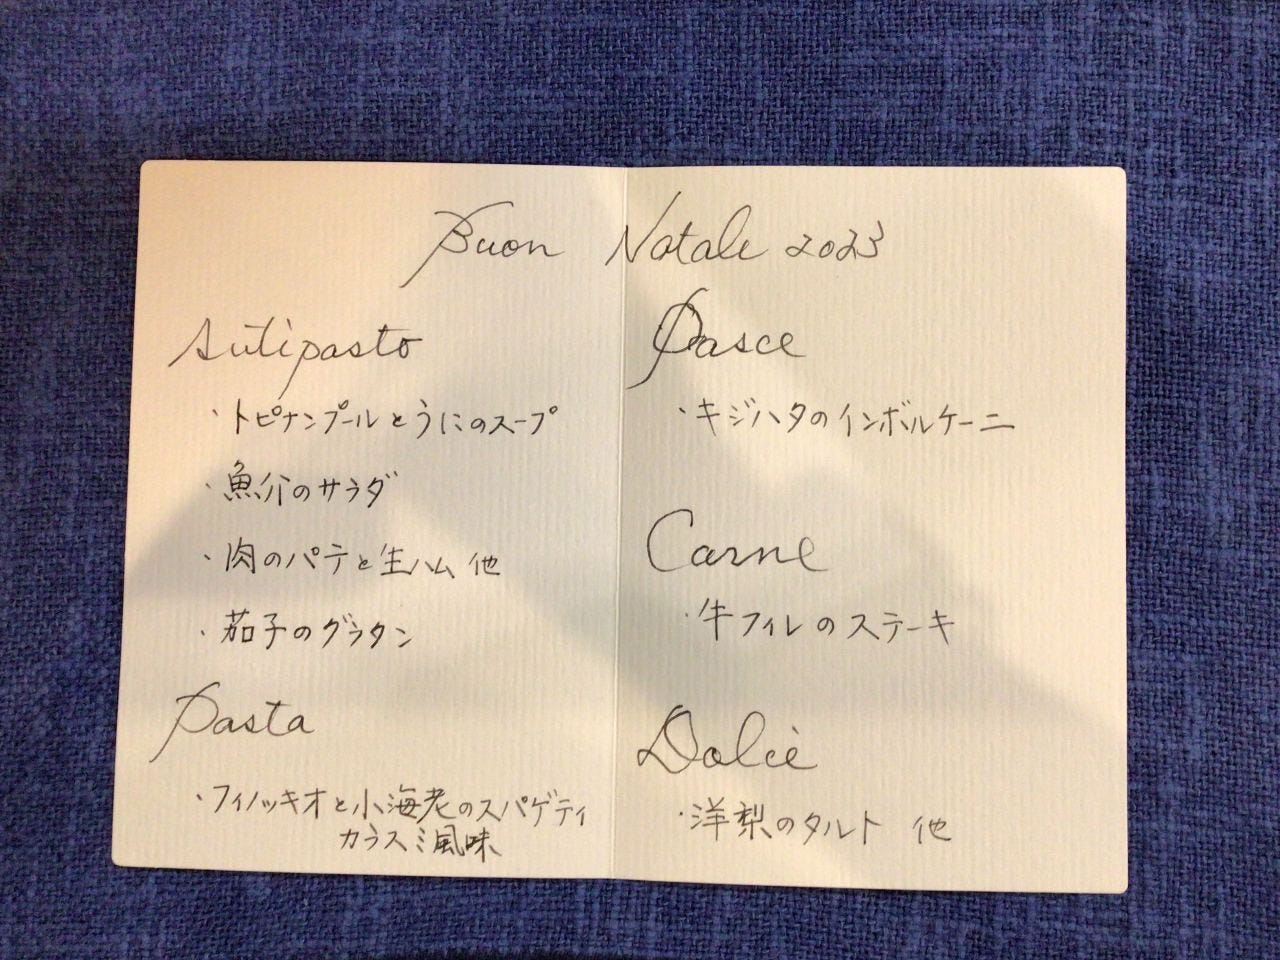 Buon Natale 2023
Antipasto
・トピナンブールとうにのスープ
・魚介のサラダ
・肉のパテと生ハム 他
・茄子のグラタン
Pasta
・フィノッキオと小海老のスパゲティ
カラスミ風味
Pasce
・キジハタのインボルケーニ
Carne
・牛フィレのステーキ
Dolce
・洋梨のタルト 他